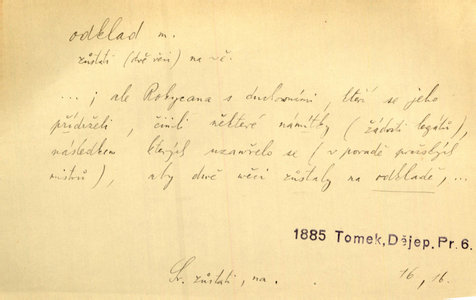 odklad m.
zůstati (dvě věci) na -ě.
... ; ale Rokycana s duchovními, kteří se jeho
přidrželi, činili některé námitky (žádosti legátů),
následkem kterých uzavřelo se (v poradě pražských
mistrů), aby dvě věci zůstaly na odkladě, ...
1885 Tomek, Dějep. Pr. 6.
Sv. zůstati, na. 16, 16.